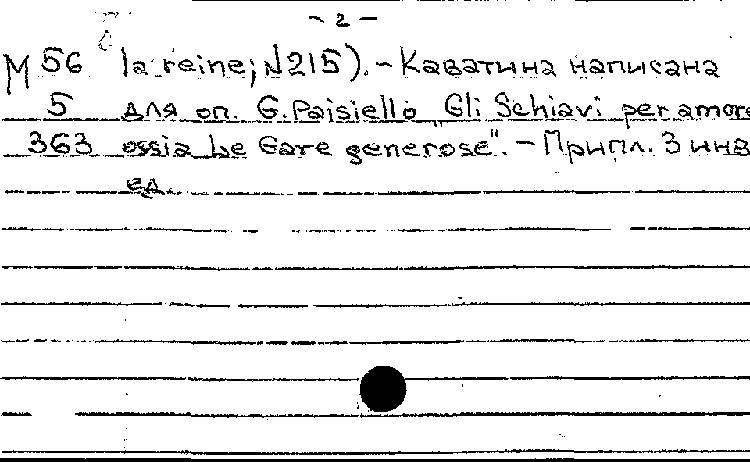 - 2 -
М 56 la reine; N215). - Каватина написана
5 для оп. G. Paisiello "Gli Schiavi per amore
363 ossia Le Gare generose". - Припл. 3 инв
ед.